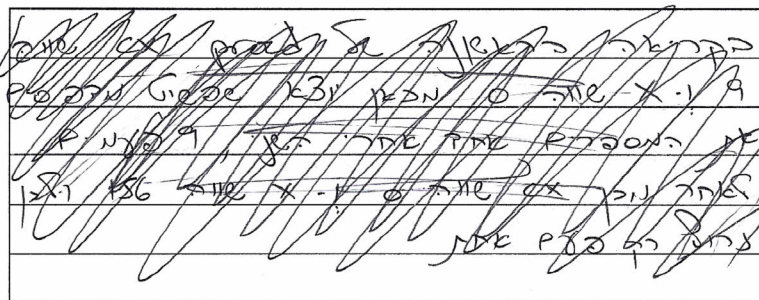 בקריאה הראשונה של אם שווה
9 ו- X שווה 0 מכאן יוצא שפשוט מדפיסים
את המספרים אחד אחרי השני 9 פעמים
לאחר מכן שווה 0 ו- X שווה 156 ולכן
רק פעם אחת